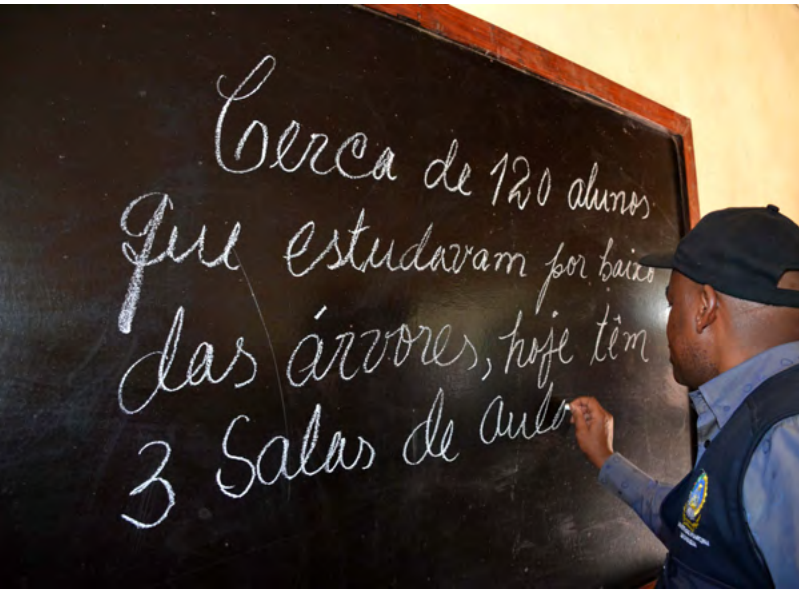 Cerca de 120 alunos
que estudavam por baixo
das árvores, hoje têm
3 Salas de aula